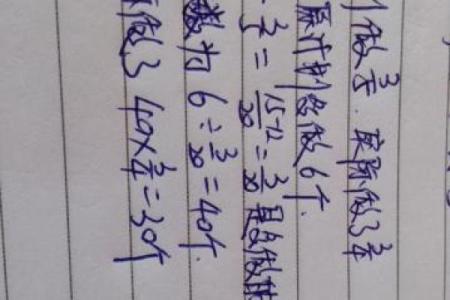 做3/5. 实际做了3/4
原计划多做6个.
- 3/5 = 15-12/20 = 3/20 是多做
数为 6÷3/20=40个.
做了 40×3/4=30个